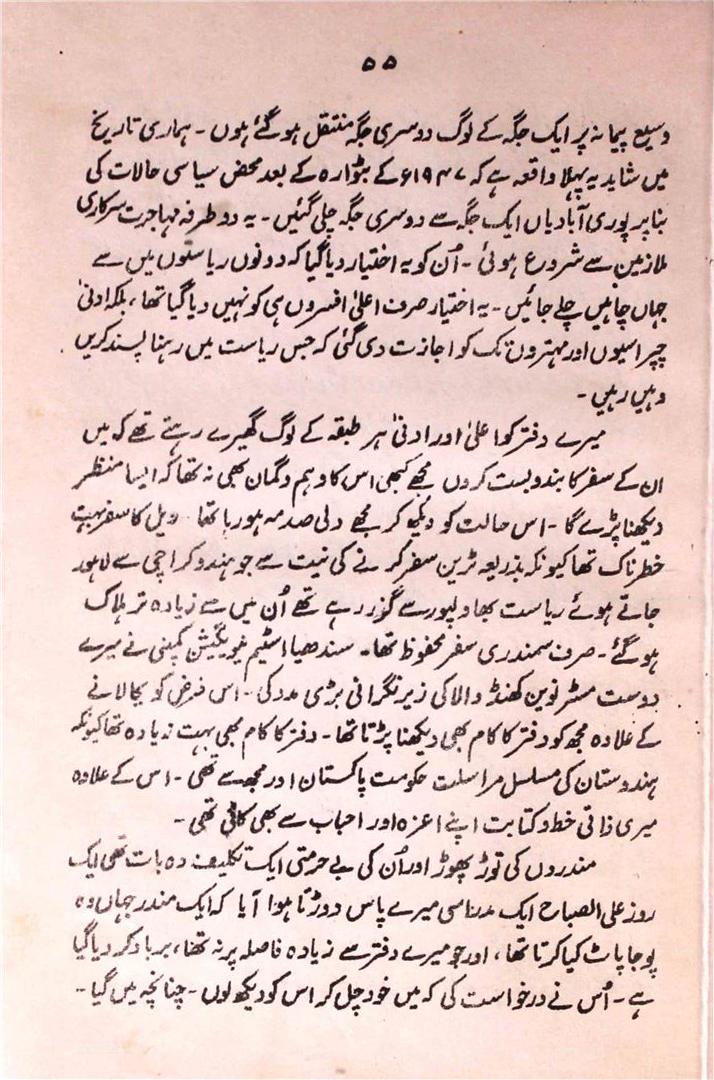 ۵۵
وسیع پیمانہ پر ایک جگہ کے لوگ دوسری جگہ منتقل ہو گئے ہوں ۔ ہماری تاریخ
میں شاید یہ پہلا واقعہ ہے کہ ۱۹۴۷ء کے بٹوارہ کے بعد محض سیاسی حالات کی
بنا پر پوری آبادیاں ایک جگہ سے دوسری جگہ چلی گئیں ۔ یہ دو طرفہ مہاجرت سرکاری
ملازمین سے شروع ہوئی ۔ اُن کو یہ اختیار دیا گیا کہ دونوں ریاستوں میں سے
جہاں چاہیں چلے جائیں ۔ یہ اختیار صرف اعلیٰ افسروں ہی کو نہیں دیا گیا تھا ، بلکہ ادنیٰ
چپراسیوں اور مہتروں تک کو اجازت دی گئی کہ جس ریاست میں رہنا پسند کریں
وہیں رہیں ۔
میرے دفتر کو اعلیٰ اور ادنیٰ ہر طبقہ کے لوگ گھیرے رہتے تھے کہ میں
ان کے سفر کا بندوبست کروں مجھے کبھی اس کا وہم و گمان بھی نہ تھا کہ ایسا منظر
دیکھنا پڑے گا ۔ اس حالت کو دیکھ کر مجھے دلی صدمہ ہو رہا تھا ۔ ریل کا سفر بہت
خطرناک تھا کیونکہ بذریعہ ٹرین سفر کرنے کی نیت سے جو ہندو کراچی سے لاہور
جاتے ہوئے ریاست بھاولپور سے گزر رہے تھے اُن میں سے زیادہ تر ہلاک
ہو گئے ۔ صرف سمندری سفر محفوظ تھا ۔ سندھیا اسٹیم نیویگیشن کمپنی نے میرے
دوست مسٹر نوین کھنڈ والا کی زیر نگرانی بڑی مدد کی ۔ اس فرض کو بجا لانے
کے علاوہ مجھ کو دفتر کا کام بھی دیکھنا پڑتا تھا ۔ دفتر کا کام بھی بہت زیادہ تھا کیونکہ
ہندوستان کی مسلسل مراسلت حکومت پاکستان اور مجھ سے تھی ۔ اس کے علاوہ
میری ذاتی خط و کتابت اپنے اعزہ اور احباب سے بھی کافی تھی ۔
مندروں کی توڑ پھوڑ اور اُن کی بے حرمتی ایک تکلیف دہ بات تھی ایک
روز علی الصباح ایک مدراسی میرے پاس دوڑتا ہوا آیا کہ ایک مندر جہاں وہ
پوجا پاٹ کیا کرتا تھا ، اور جو میرے دفتر سے زیادہ فاصلہ پر نہ تھا ، برباد کر دیا گیا
ہے ۔ اُس نے درخواست کی کہ میں خود چل کر اس کو دیکھ لوں ۔ چنانچہ میں گیا ۔